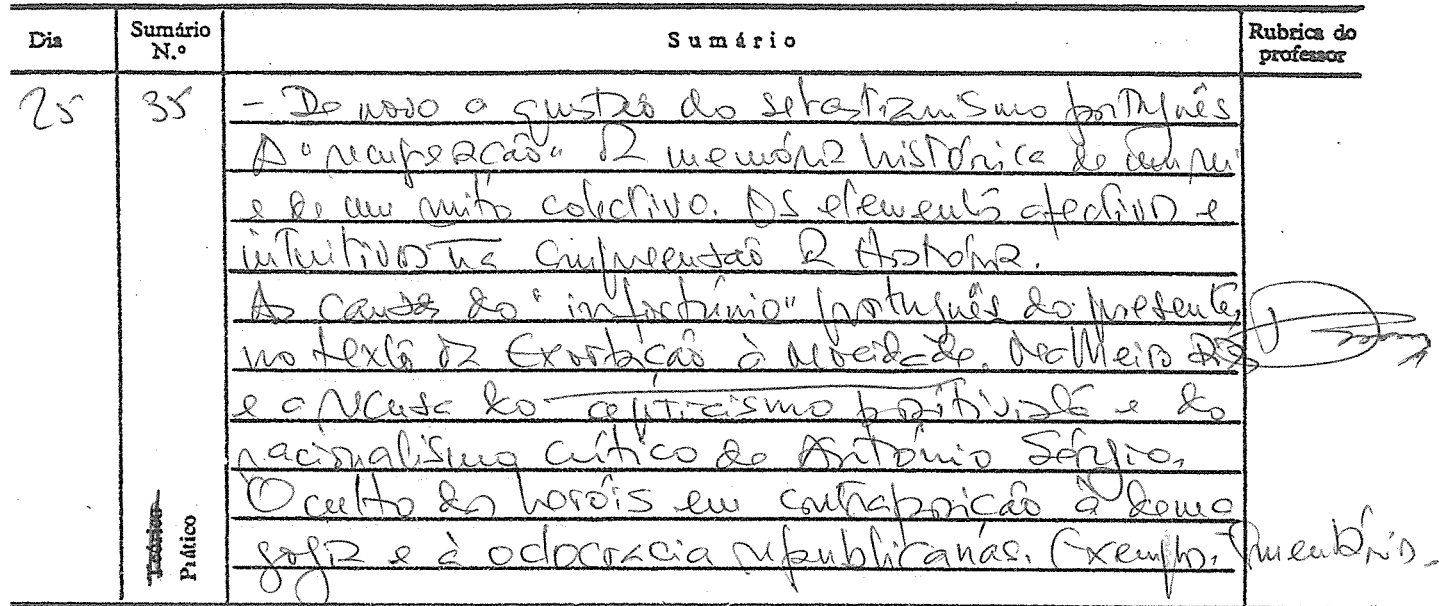 Dia Sumário N.º Sumário Rubrica do professor
25 35 - De novo a questão do sebastianismo português
A "recuperação" da memória histórica de um rei
e de um mito colectivo. Os elementos afectivos e
intuitivos na compreensão da História.
As causas do "infortúnio" português do presente,
no texto da Exortação à Mocidade. Malheiro Dias
e a recusa do cepticismo positivista e do
racionalismo crítico de António Sérgio.
O culto dos heróis em contraposição à demo
gogia e à oclocracia republicanas. Exempl.
Teórico
Prático